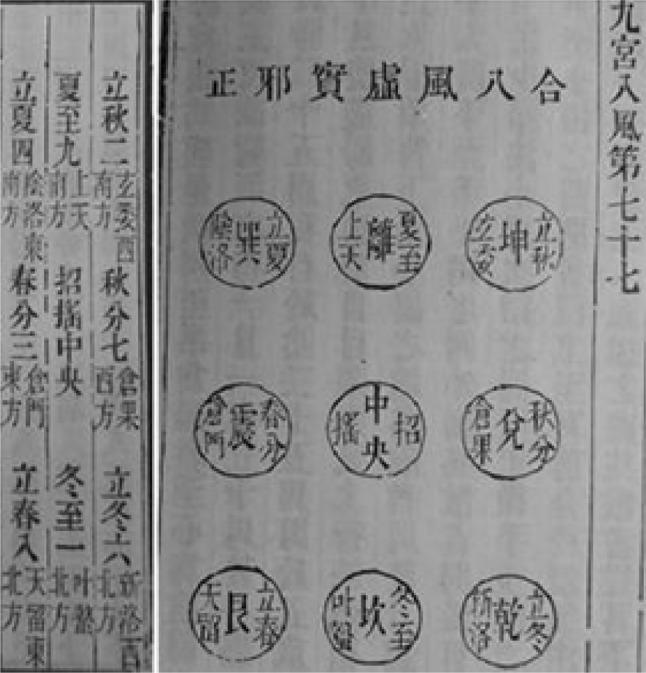 九宮八風第七十七
合八風虛實邪正
立秋 坤 玄委
夏至 離 上天
立夏 巽 陰洛
秋分 兌 倉果
招 中央 搖
春分 震 倉門
立冬 乾 新洛
冬至 坎 叶蟄
立春 艮 天留
立秋二 玄委西南方 秋分七 倉果西方 立冬六 新洛西北方
夏至九 上天南方 招搖中央 冬至一 叶蟄北方
立夏四 陰洛東南方 春分三 倉門東方 立春八 天留東北方